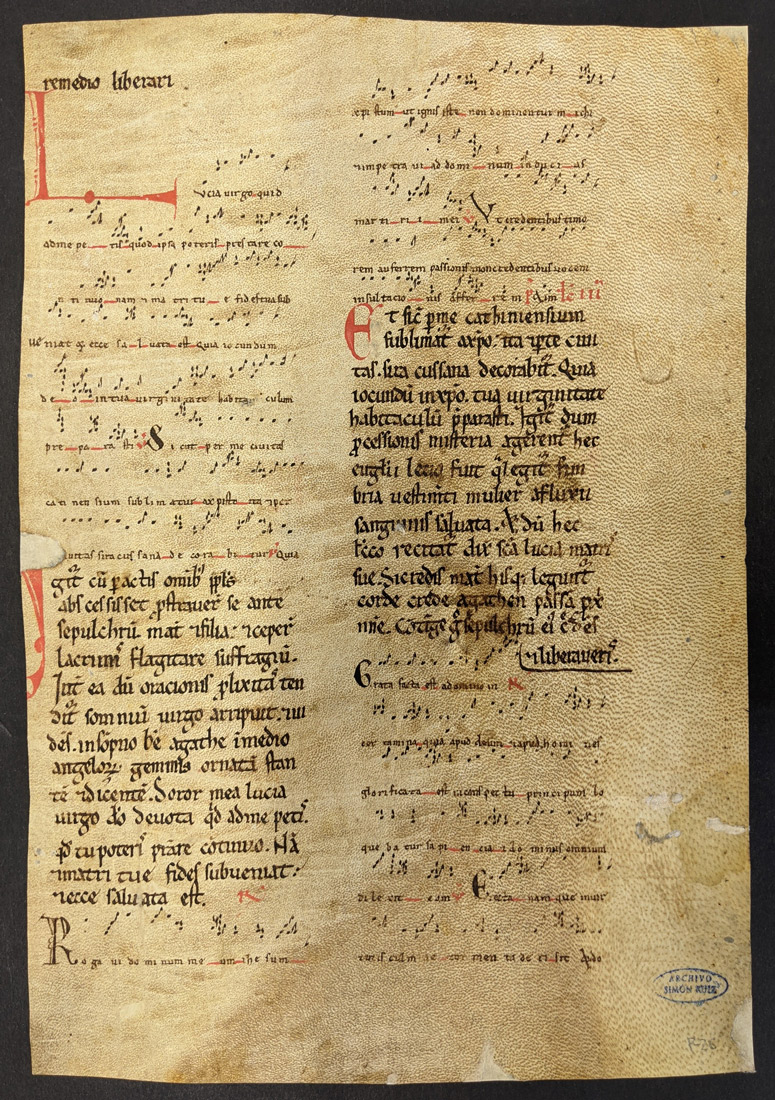 remedio liberari
Lucia virgo quid
ad me pe tis quod ipsa poteris pres tare co
n ti nuo nam & ma tri tu e fides tua sub
ue niat & ecce sa l uata est Quia iocundum
de o in tua uirginitate habita culum
pre pa ra sti Si cut per me ciuitas
cati nen sium sub lim atur a xpisto ita & per
ciuitas siracussana de co ra bi tur Quia
git cũ pactis omib; ppls
abscessisset pstrauer se ante
sepulchrũ mat & filia &ceper
lacrimis flagitare suffragiũ.
Int ea dũ oracionis plixita ten
dit somniũ uirgo arripuit. ui
des. in sopno be agathe ĩ medio
angeloꝝ gemmis ornatã stan
tẽ & dicentẽ. Soror mea lucia
uirgo do deuota qd a me petis.
qd tu poteris prãre cotinuo. Nã
& matri tue fides subueniat.
& ecce saluata est. R
Ro ga ui do mi num me um ihe sum
xpi stum ut ignis iste non dominentur michi
& impe tra ui a do mi num in du ci as
mar ti ri i mei Vt credentibus timo
rem auferrem passionis & non credentibus uocem
insultacio nis afferrẽ m Qm lc iii
Et sic p me cathiniensium
sublimat a xpo. ita & p te ciui
tas. sira cussana decorabit. Quia
iocundũ in xpo. tua uirginitate
habitaculũ pparasti. Igit dum
pcessionis misteria agerent hec
euglii lectio fuit q legit fim
bria uestimti mulier a fluxu
sanguinis saluata. & dũ hec
lcco recitat dix scã lucia matri
sue. Si credis mat his q legunt
corde crede agathen passa p xp
nie. Cotige g sepulchrũ ei & c des
& liberaueris.
Grata facta est a domino in R
cer tamine quia apud deum & apud ho mi nes
glorificata est in conspec tu principum lo
que ba tur sapi en cia & do minus omnium
di le xit eam Et ta nam que mun
cor meu ta de ci sit Qdo
ARCHIVO
SIMON RUIZ